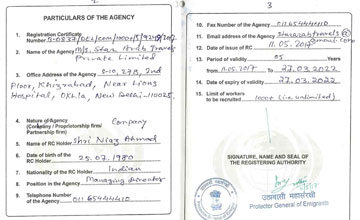 PARTICULARS OF THE AGENCY
1. Registration Certificate
Number
2. Name of the Agency M/s. Star Arab Travels
Private Limited
3. Office Address of the Agency
Floor, Khizrabad, Near Lions
Hospital, Okhla, New Delhi-110025.
4. Nature of Agency Company
(Company / Proprietorship firm/
Partnership firm)
5. Name of RC Holder Shri Niaz Ahmad
6. Date of birth of the 1980
RC Holder
7. Nationality of the RC Holder Indian
8. Position in the Agency Managing Director
9. Telephone 01165444410
Number of the Agency
3
10. Fax Number of the Agency 01165444410
11. Email address of the Agency
12. Date of issue of RC 11.05.
13. Period of validity 05 Years
from to 27.03.2022
14. Date of expiry of validity 27.03.2022
15. Limit of workers
to be recruited 1000+ (i.e. unlimited)
SIGNATURE, NAME AND SEAL OF
THE REGISTERING AUTHORITY
उत्प्रवासी महासंरक्षी
Protector General of Emigrants